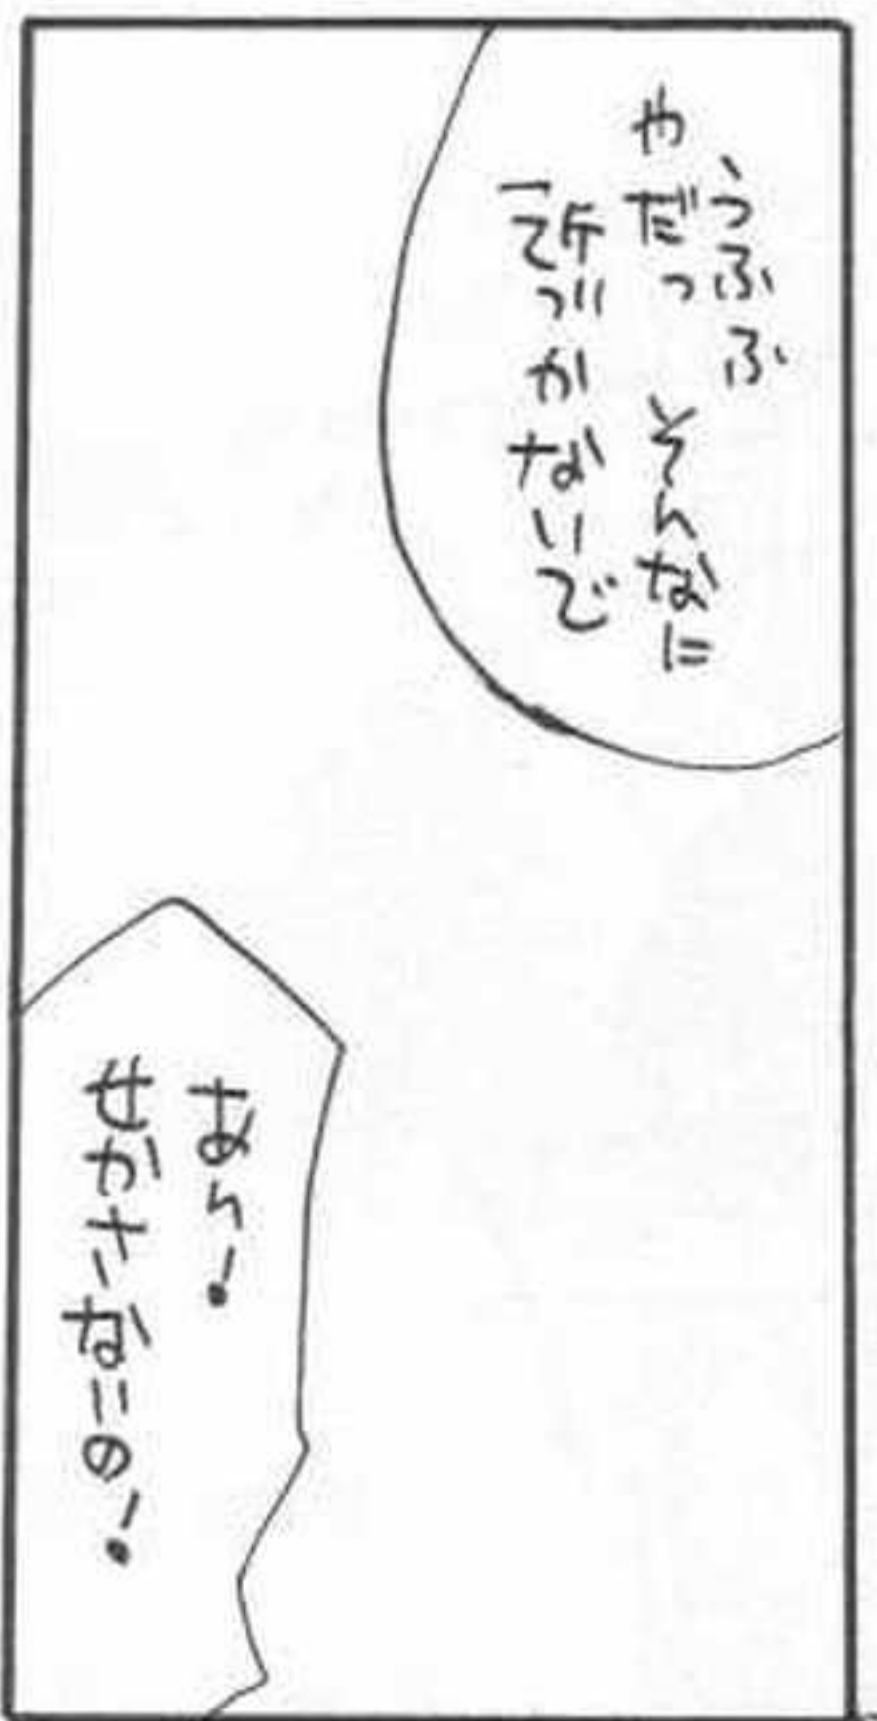 うふふ
やだっ そんなに
近づかないで
あん!
せかさないの!